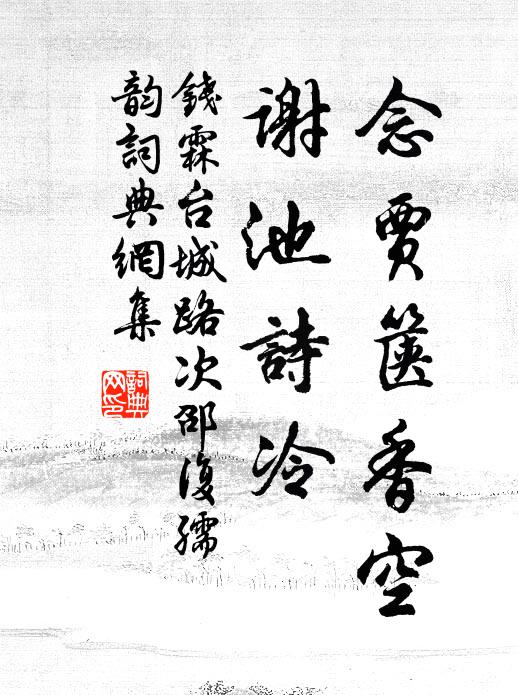 念賈箧香空
謝池詩冷
錢霖台城路次邵復孺
韵詞典網集
詞典网印